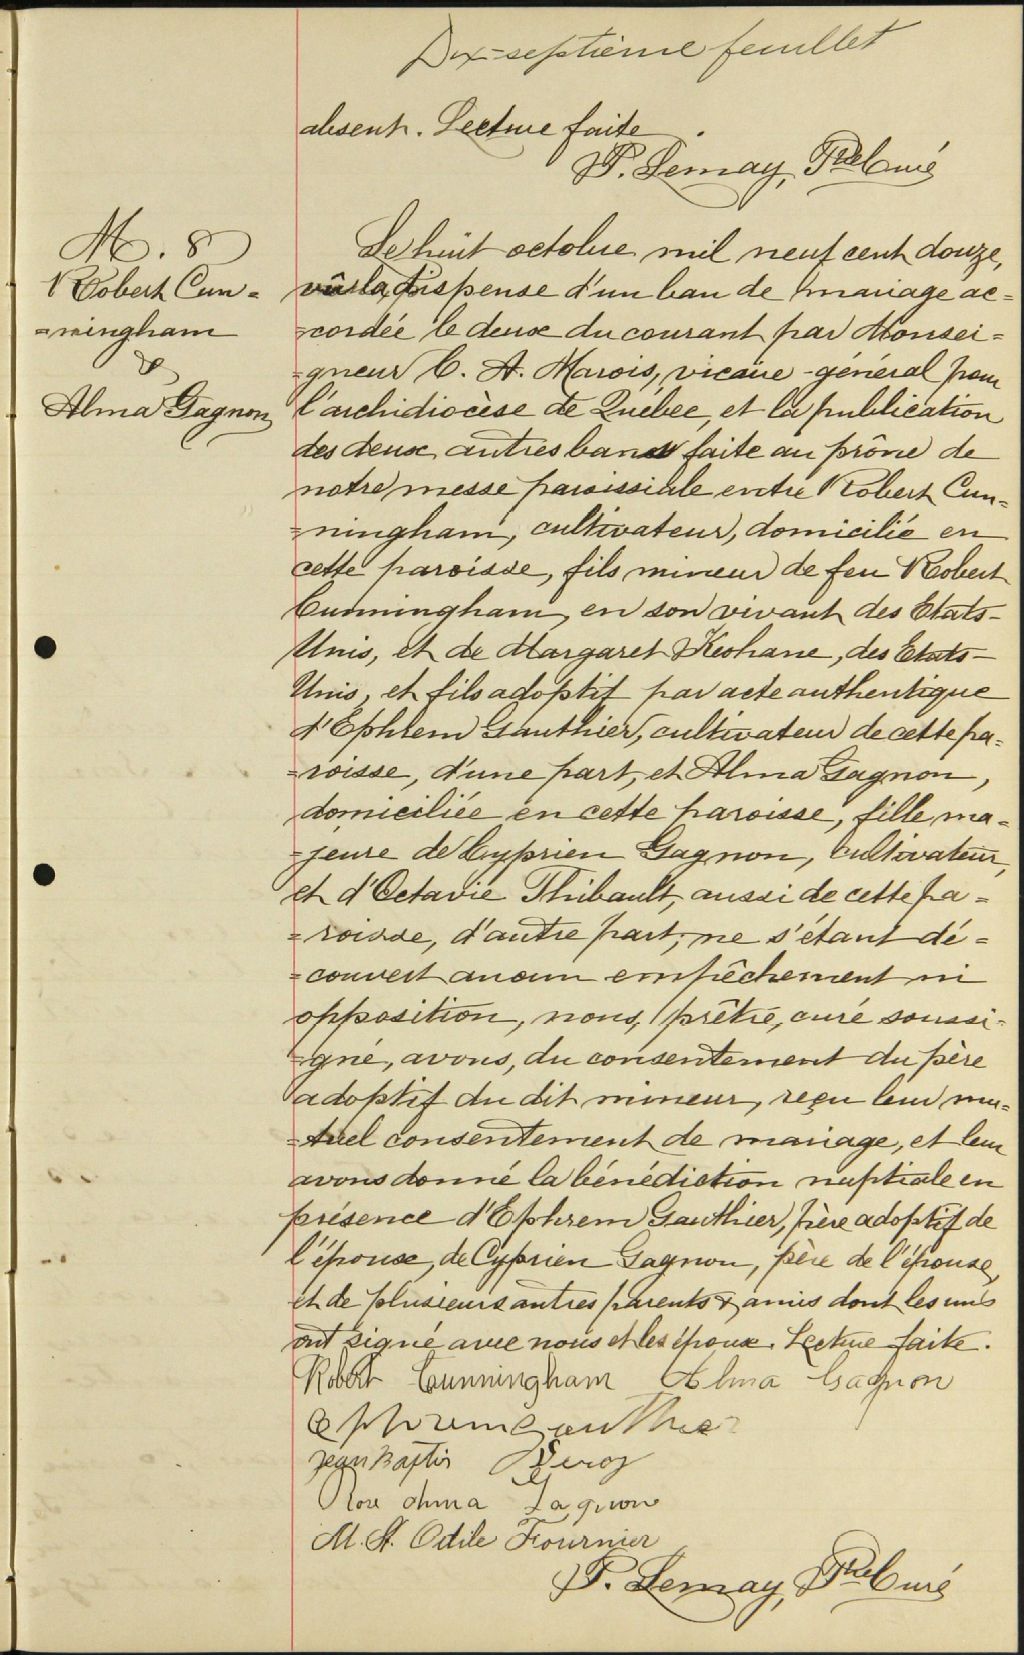 Dix-septième feuillet
absent. Lecture faite.
P. Lemay, Ptre Curé
M. 8
Robert Cun=
=ningham
&
Alma Gagnon
Le huit octobre mil neuf cent douze,
vu la dispense d'un ban de mariage ac=
=cordée le deux du courant par Monsei=
=gneur C. A. Marois, vicaire-général pour
l'archidiocèse de Québec, et la publication
des deux autres bans faite au prône de
notre messe paroissiale entre Robert Cun=
=ningham, cultivateur, domicilié en
cette paroisse, fils mineur de feu Robert
Cunningham, en son vivant des Etats-
Unis, et de Margaret Keohane, des Etats-
Unis, et fils adoptif par acte authentique
d'Ephrem Gauthier, cultivateur de cette pa=
=roisse, d'une part, et Alma Gagnon,
domiciliée en cette paroisse, fille ma=
=jeure de Cyprien Gagnon, cultivateur,
et d'Octavie Thibault, aussi de cette pa=
=roisse, d'autre part, ne s'étant dé=
=couvert aucun empêchement ni
opposition, nous, prêtre, curé soussi=
=gné, avons, du consentement du père
adoptif du dit mineur, reçu leur mu=
=tuel consentement de mariage, et leur
avons donné la bénédiction nuptiale en
présence d'Ephrem Gauthier, père adoptif de
l'époux, de Cyprien Gagnon, père de l'épouse,
et de plusieurs autres parents & amis dont les uns
ont signé avec nous et les époux. Lecture faite.
Robert Cunningham Alma Gagnon
Ephrem Gauthier
Jean Baptis
Rose Gagnon
M. A. Odile Fournier
P. Lemay, Ptre Curé